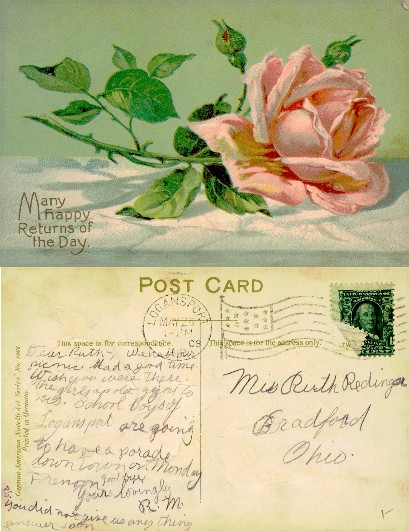 Many
Happy
Returns of
the Day.
POST CARD
LOGANSPORT
This space is for correspondence.
08
This space is for the address only.
German American Novelty Art Series No.
Printed in Germany
Dear Ruth,
picnic. Had a good time.
Wish you were there.
The girls
School Boys of
Logansport are going
to have a parade
down town on Monday
Forenoon good bye
Yours lovingly
R. M.
You did not give us any thing
answer soon
Miss Ruth Redinger
Bradford
Ohio.